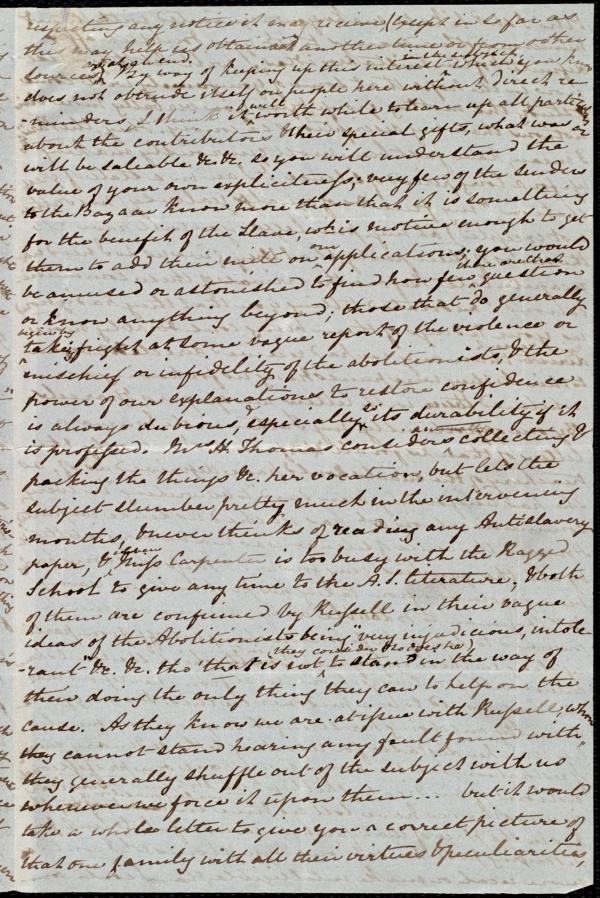 respecting any notice it may receive (except in so far as
this may help us obtain aid another time or from other
sources). By way of keeping up this interest which you know
does not obtrude itself on people here without direct re-
-minders, I think it will worth while to learn up all particulars
about the contributors & their special gifts, what was or
will be saleable &c. &c. so you will understand the
value of your own explicitness; very few of the senders
to the Bazaar know more than that it is something
for the benefit of the Slave, wh. is motive enough to get
them to add their mite on our applications; you would
be amused or astonished to find how few there are that question
or know anything beyond; those that do generally
begin by taking fright at some vague report of the violence or
mischief or infidelity of the abolitionists, & the
power of our explanations to restore confidence
is always dubious, & especially as to its durability if it
is professed. Mrs H Thomas considers collecting &
packing the things &c. her vocation, but lets the
subject slumber pretty much in the intervening
months, & never thinks of reading any Antislavery
paper, & Miss Carpenter is too busy with the Ragged
School to give any time to the A.S. literature, & both
of them are confirmed by Russell in their vague
ideas of the Abolitionists being "very injudicious, intole-
-rant" &c. &c. tho' that is not (they consider no does he) to stand in the way of
their doing the only thing they can to help on the
cause. As they know we are at issue with Russell, whom
they cannot stand hearing any fault found with
they generally shuffle out of the subject with us
whenever we force it upon them... but it would
take a whole letter to give you a correct picture of
that one family with all their virtues & peculiarities,